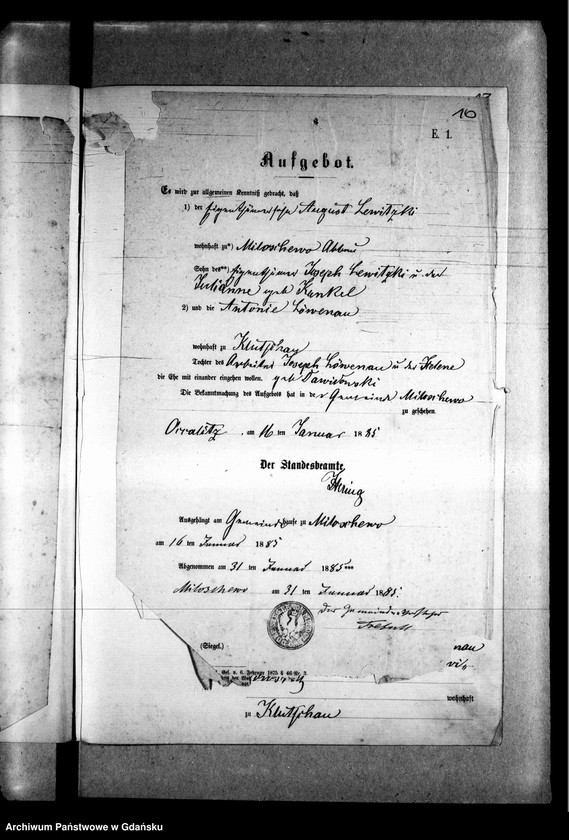 16
E. 1.
Aufgebot.
Es wird zur allgemeinen Kenntniß gebracht, daß
1) der Eigenthümersohn August Lewitzki
wohnhaft zu*) Miloschewo Abbau
Sohn des**) Eigenthümer Joseph Lewitzki u. der
Julianne geb Kunkel
2) und die Antonie Löwenau
wohnhaft zu Klutschau
Tochter des Arbeiter Joseph Löwenau u. der Helene
die Ehe mit einander eingehen wollen. geb Dawidowski
Die Bekanntmachung des Aufgebots hat in der Gemeinde Miloschewo
zu geschehen.
am 16 ten Januar 1885
Der Standesbeamte,
Ausgehängt am Gemeindehause zu Miloschewo
am 16 ten Januar 1885
Abgenommen am 31 ten Januar 1885
Miloschewo am 31 ten Januar 1885.
Der Gemeinde-Vorsteher
(Siegel.)
nau
Ges. v. 6. Februar 1875 § 46 Nr. 2
wohnhaft
zu Klutschau
Archiwum Państwowe w Gdańsku